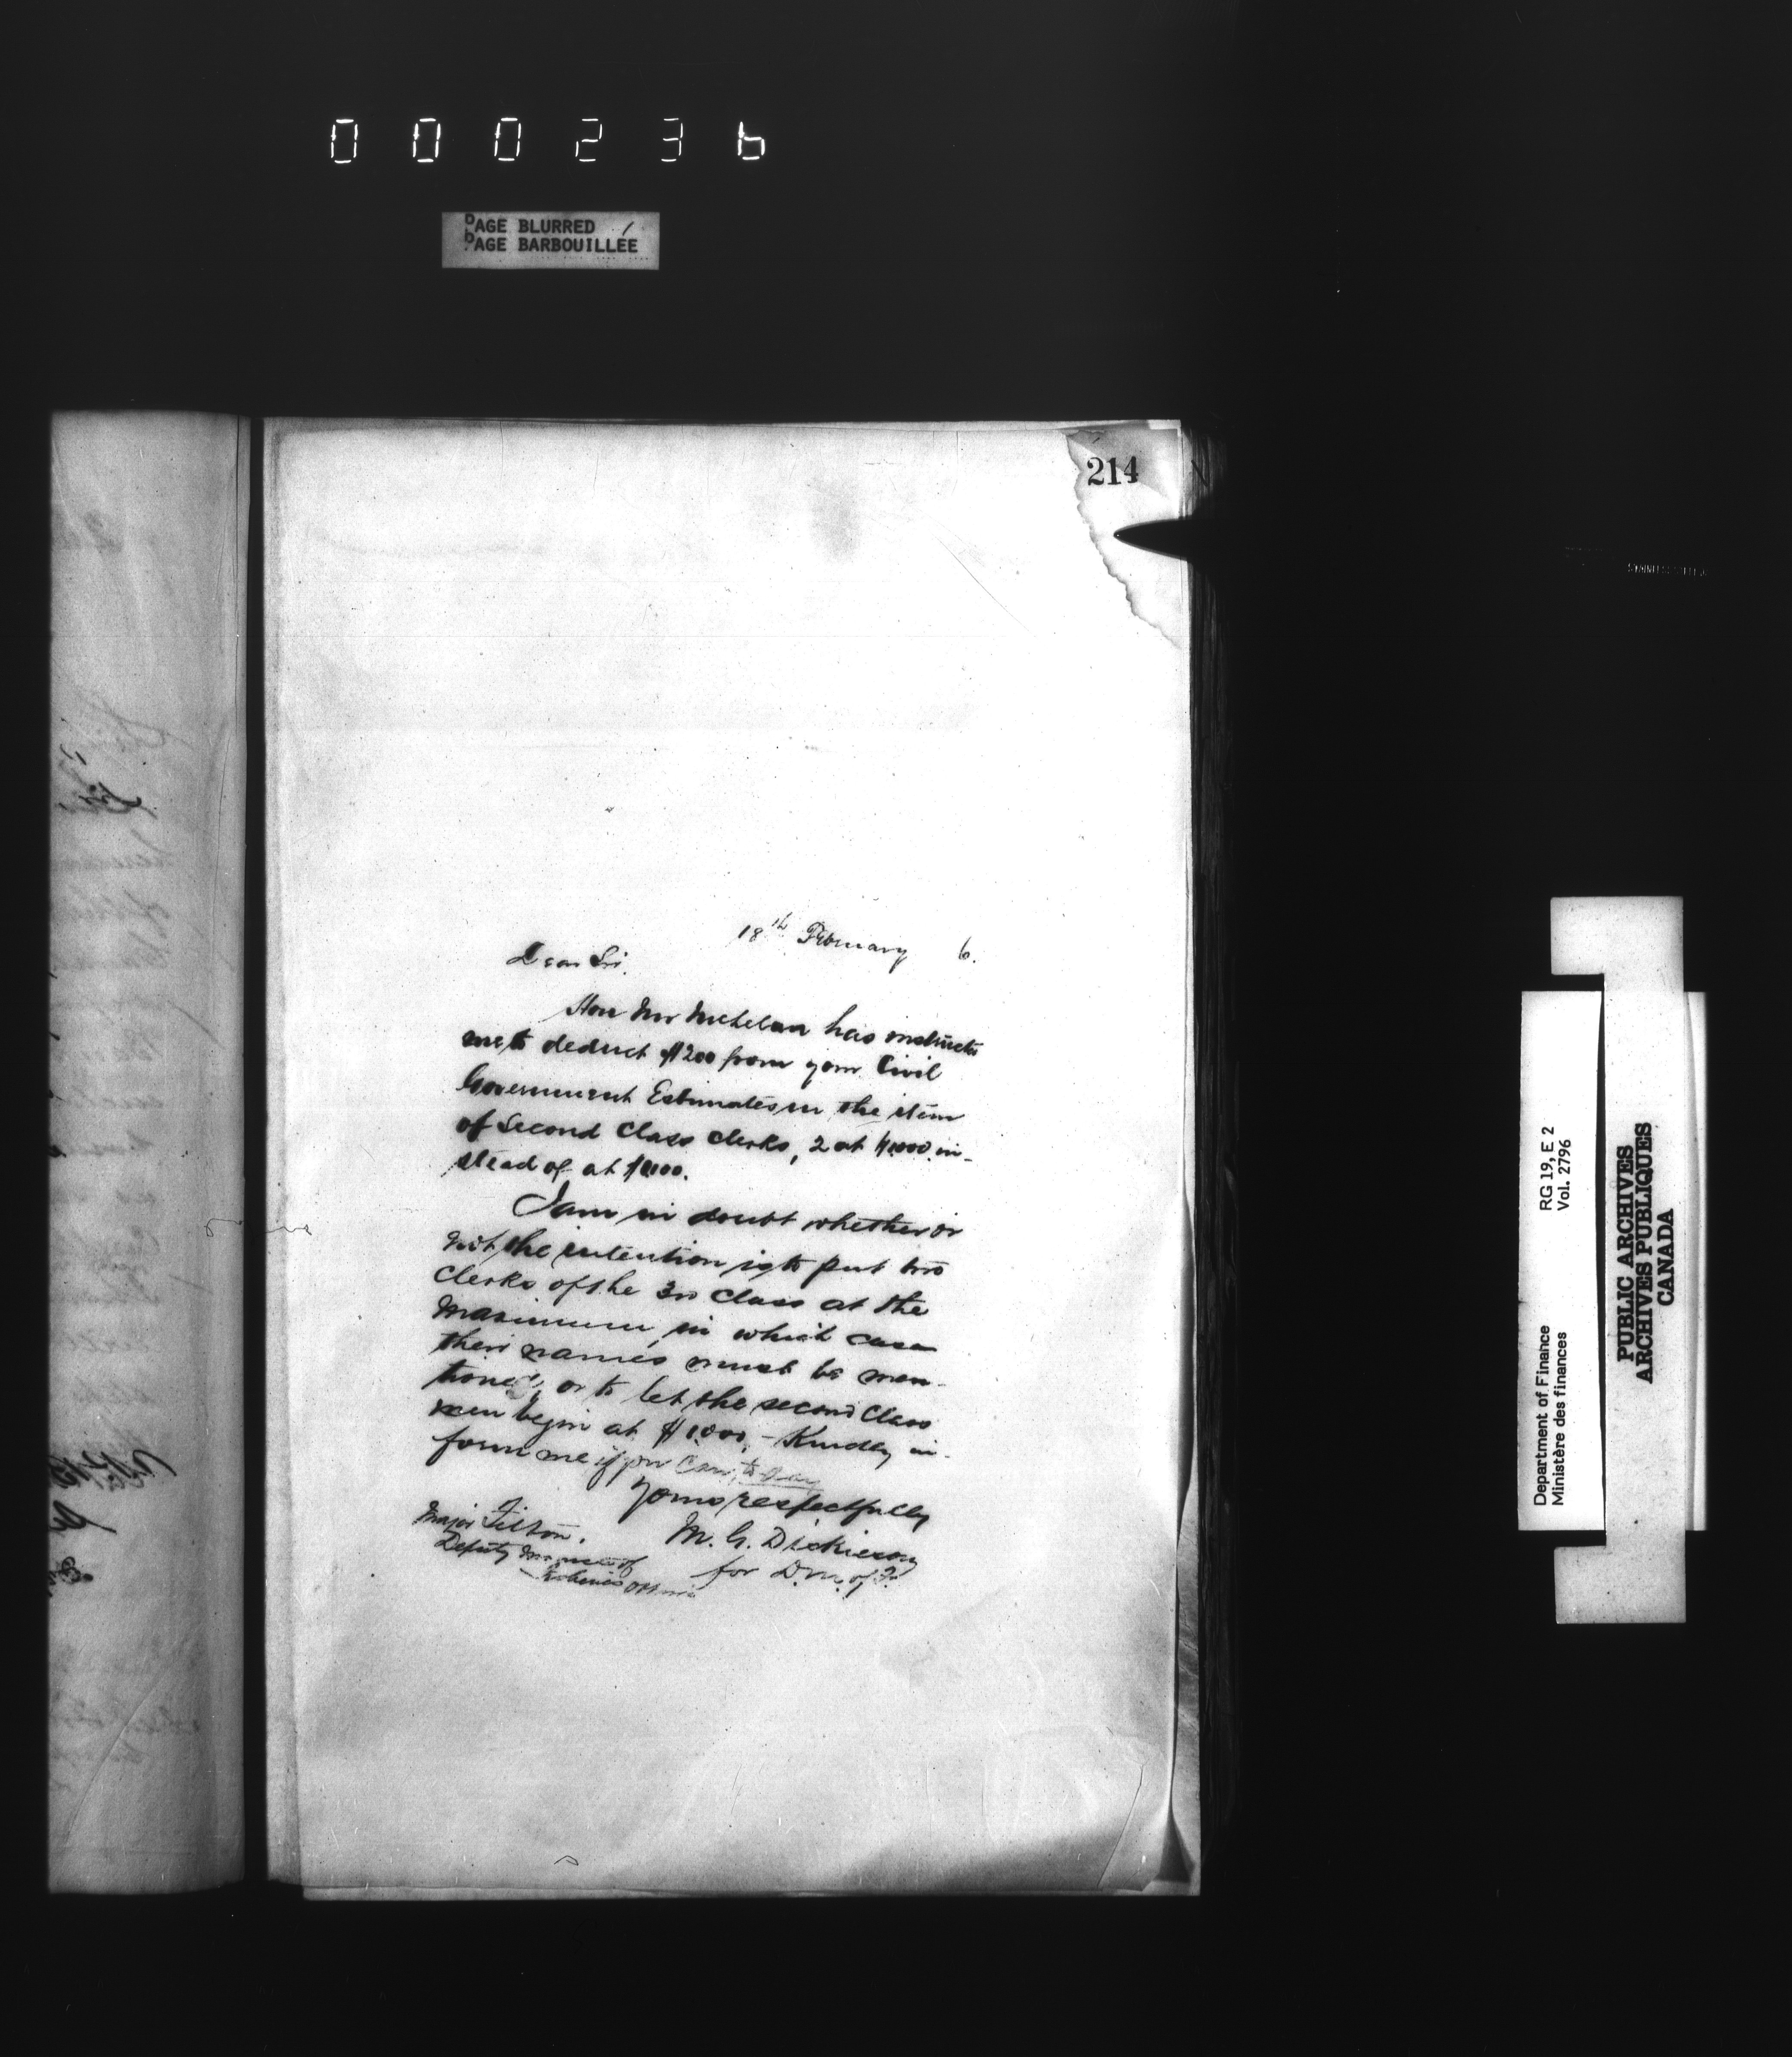 000236
PAGE BLURRED
PAGE BARBOUILLÉE
214
18th February 6.
Dear Sir.
Hon Mr McLelan has instructed
me to deduct $200 from your Civil
Government Estimates in the item
of Second Class Clerks, 2 at $1000 in-
stead of at $1100.
I am in doubt whether or
not the intention is to put two
Clerks of the 3rd Class at the
Maximum, in which case
their names must be men-
tioned, or to let the second Class
men begin at $1000, - Kindly in-
form me if you can, to day
Yours respectfully
M. G. Dickieson
for D.M. of F.
Major Tilton.
Deputy Minister of
Fisheries Ottawa
Department of Finance RG 19, E 2
Ministère des finances Vol. 2796
PUBLIC ARCHIVES
ARCHIVES PUBLIQUES
CANADA